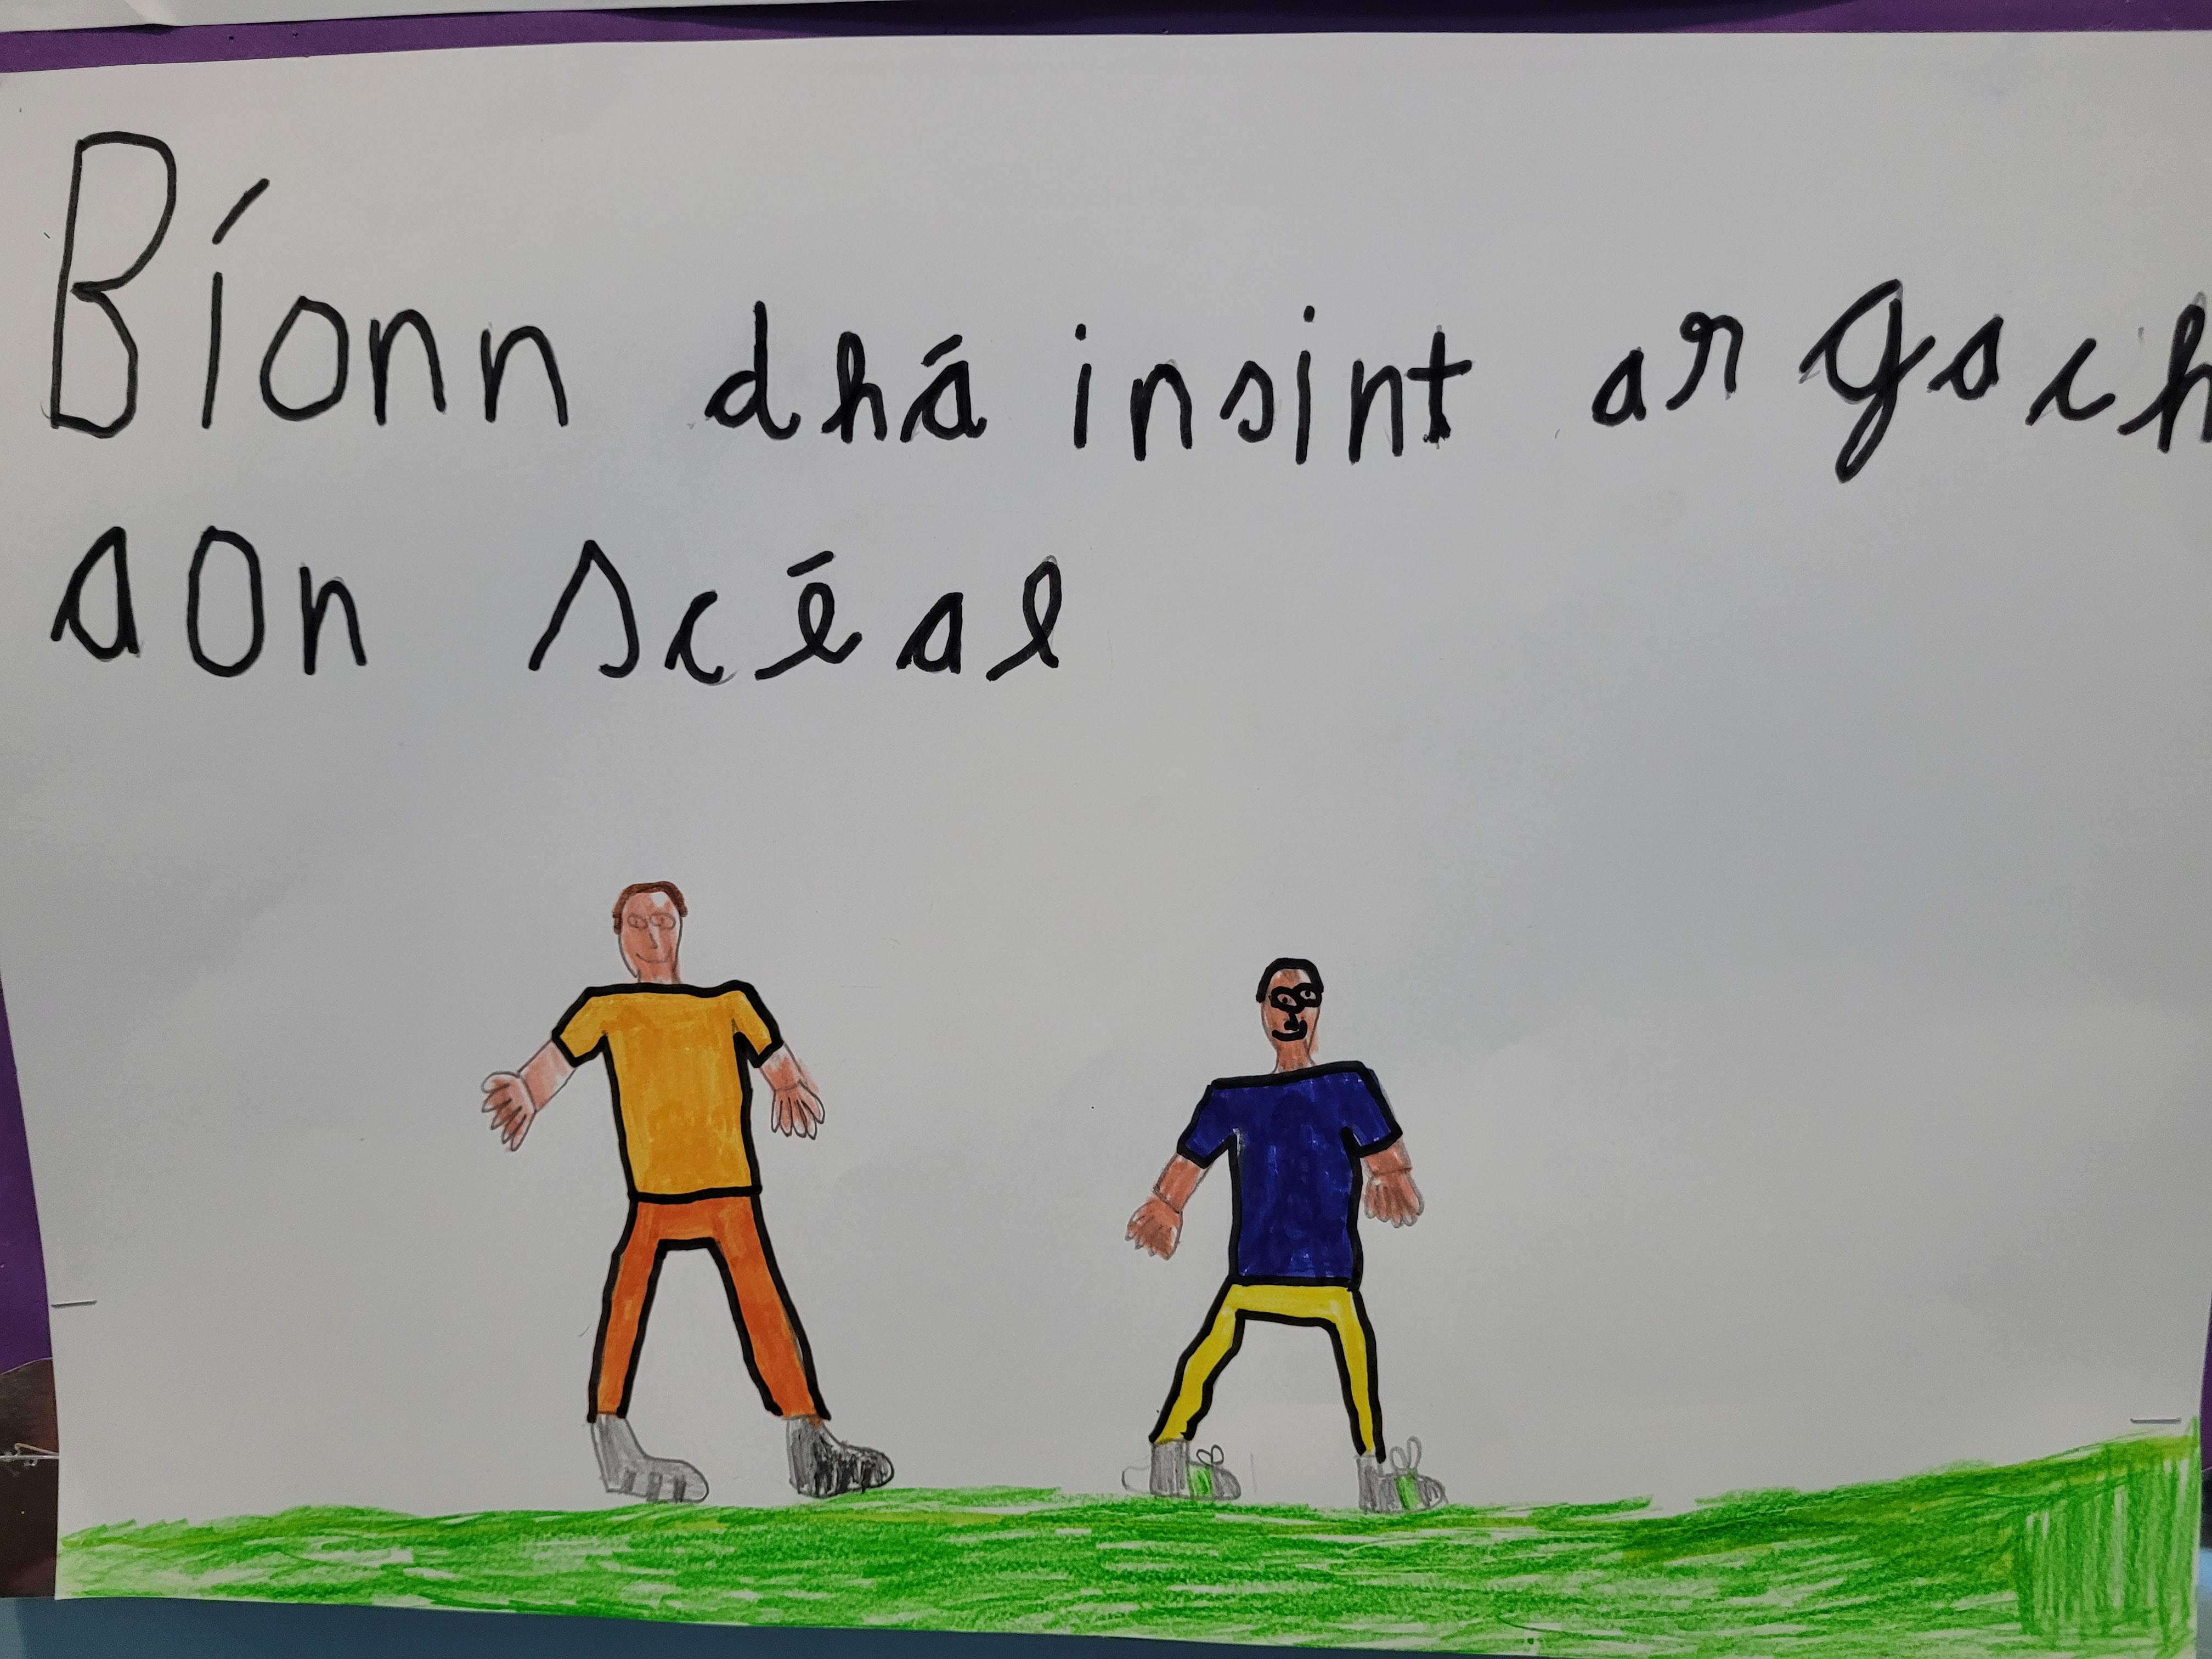 Bíonn dhá insint ar gach
aon scéal